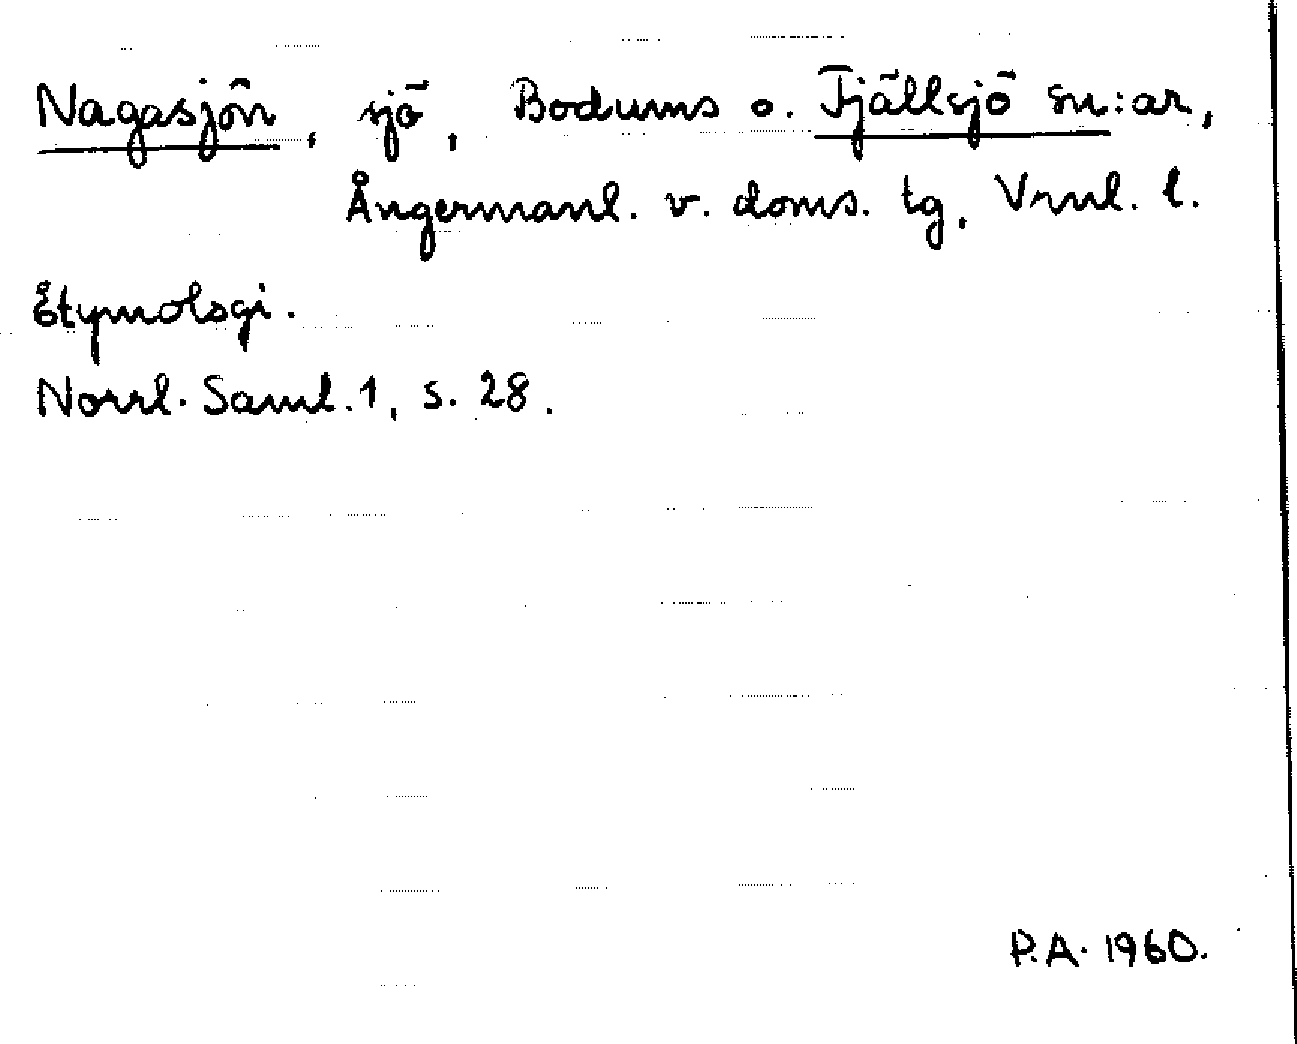 Nagasjön, sjö, Bodums o. Fjällsjö sn:ar,
Ångermanl. v. doms. tg, Vrnl. l.
Etymologi.
Norrl. Saml. 1, s. 28.
P.A. 1960.